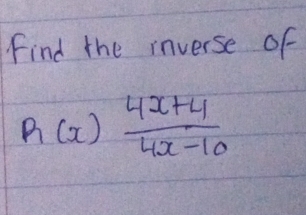 Find the inverse of
h (x) 4x+4
4x-10